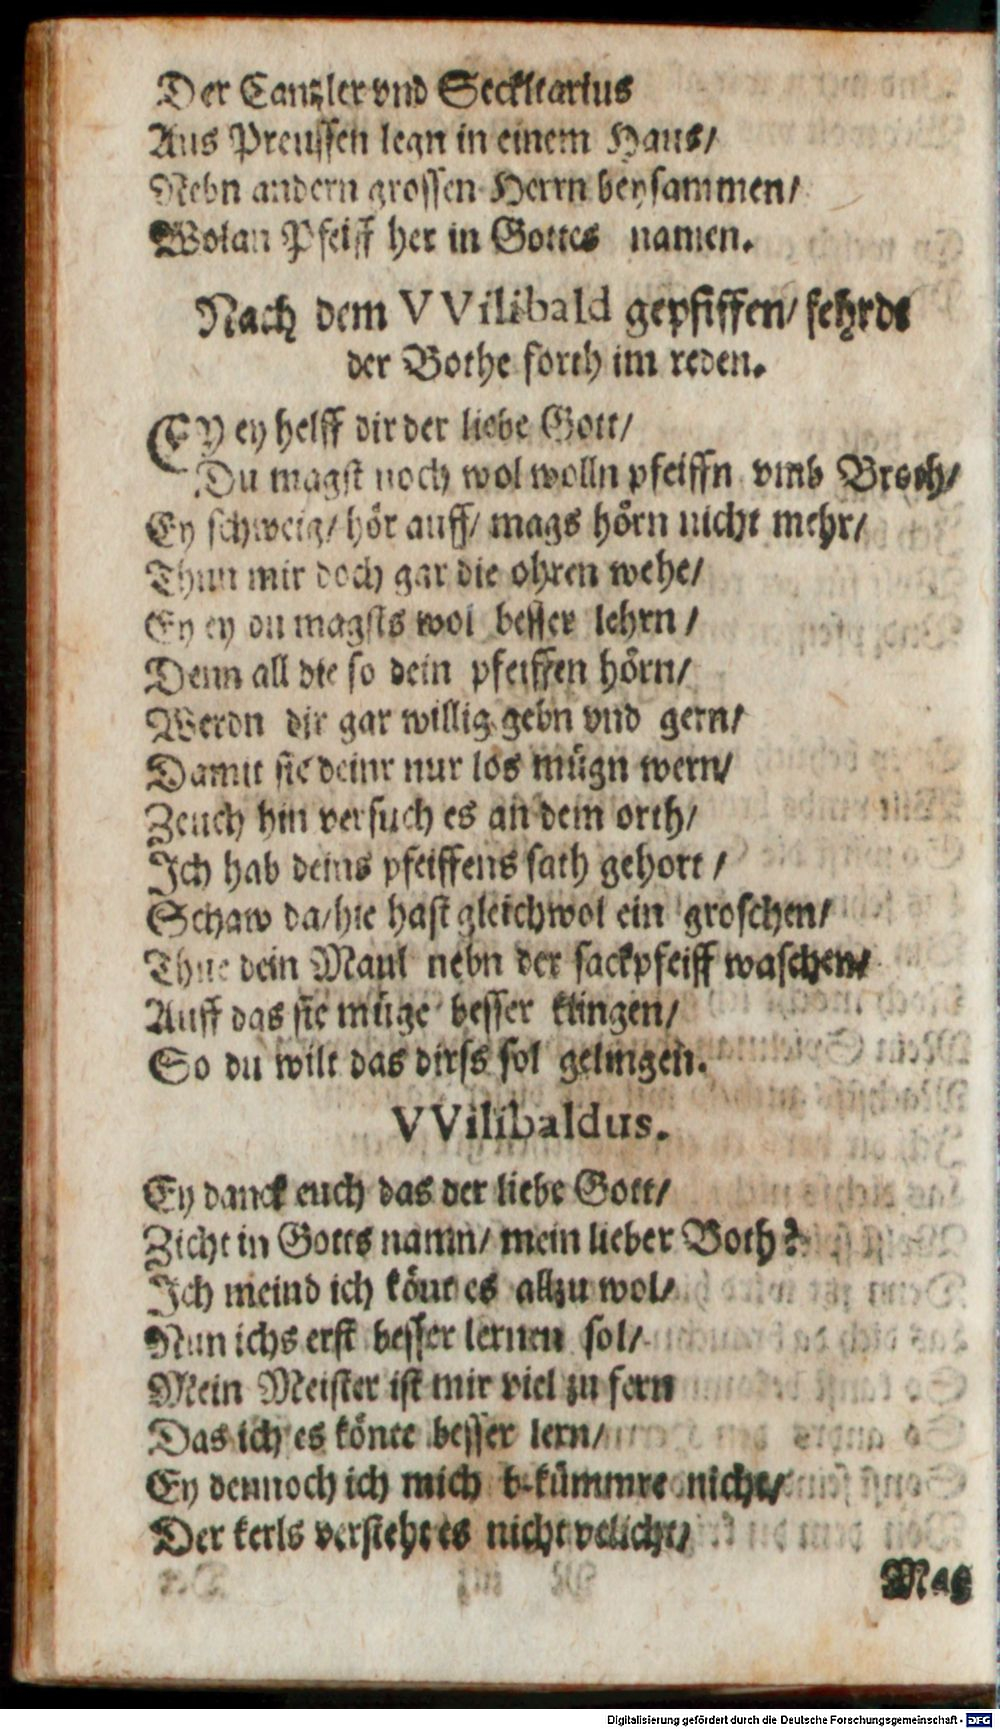 Der Cantzler vnd Seckletarius
Aus Preussen legn in einem Haus/
Nebn andern grossen Herrn beysammen/
Wolan Pfeiff her in Gottes namen.
Nach dem VVilibald gepfiffen/ fehrdt
der Bothe forth im reden.
EY ey helff dir der liebe Gott/
Du magst noch wol wolln pfeiffn vmb Broth/
Ey schweig/ hör auff/ mags hörn nicht mehr/
Thun mir doch gar die ohren wehe/
Ey ey du magsts wol besser lehrn/
Denn all die so dein pfeiffen hörn/
Werdn dir gar willig gebn vnd gern/
Damit sie deinr nur los mügn wern/
Zeuch hin versuch es an dem orth/
Ich hab deins pfeiffens sath gehort/
Schaw da/hie hast gleichwol ein groschen/
Thue dein Maul nebn der sackpfeiff waschen/
Auff das sie müge besser klingen/
So du wilt das dirss sol gelingen.
VVilibaldus.
Ey danck euch das der liebe Gott/
Zicht in Gotts namn/ mein lieber Both?
Ich meind ich könt es allzu wol/
Nun ichs erst besser lernen sol/
Mein Meister ist mir viel zu fern
Das ich es könte besser lern/
Ey dennoch ich mich bekümmre nicht/
Der kerls versteht es nicht velicht/
Mag
Digitalisierung gefördert durch die Deutsche Forschungsgemeinschaft - DFG